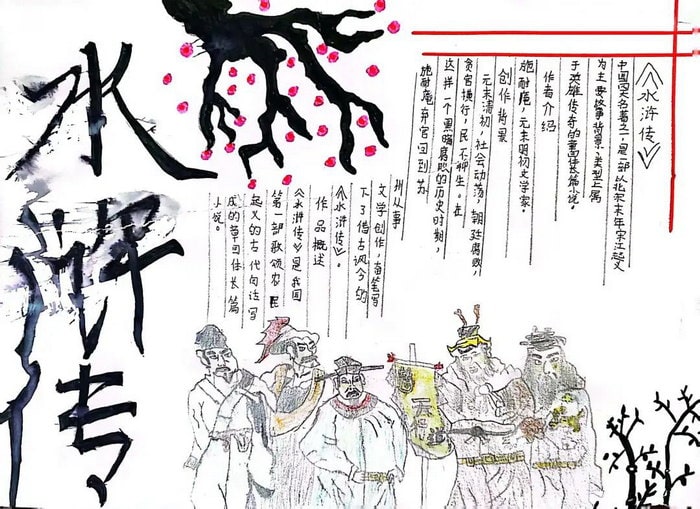 水浒传
《水浒传》
中国四大名著之一，是一部以北宋末年宋江起义
为主要故事背景、类型上属
于英雄传奇的章回体长篇小说。
作者介绍
施耐庵，元末明初文学家。
创作背景
元末清初，社会动荡，朝廷腐败，
贪官横行，民不聊生。在
这样一个黑暗腐败的历史时期，
施耐庵弃官回到苏
州从事
文学创作，奋笔写
下了借古讽今的
《水浒传》。
作品概述
《水浒传》是我国
第一部歌颂农民
起义的古代白话写
成的章回体长篇
小说。
天